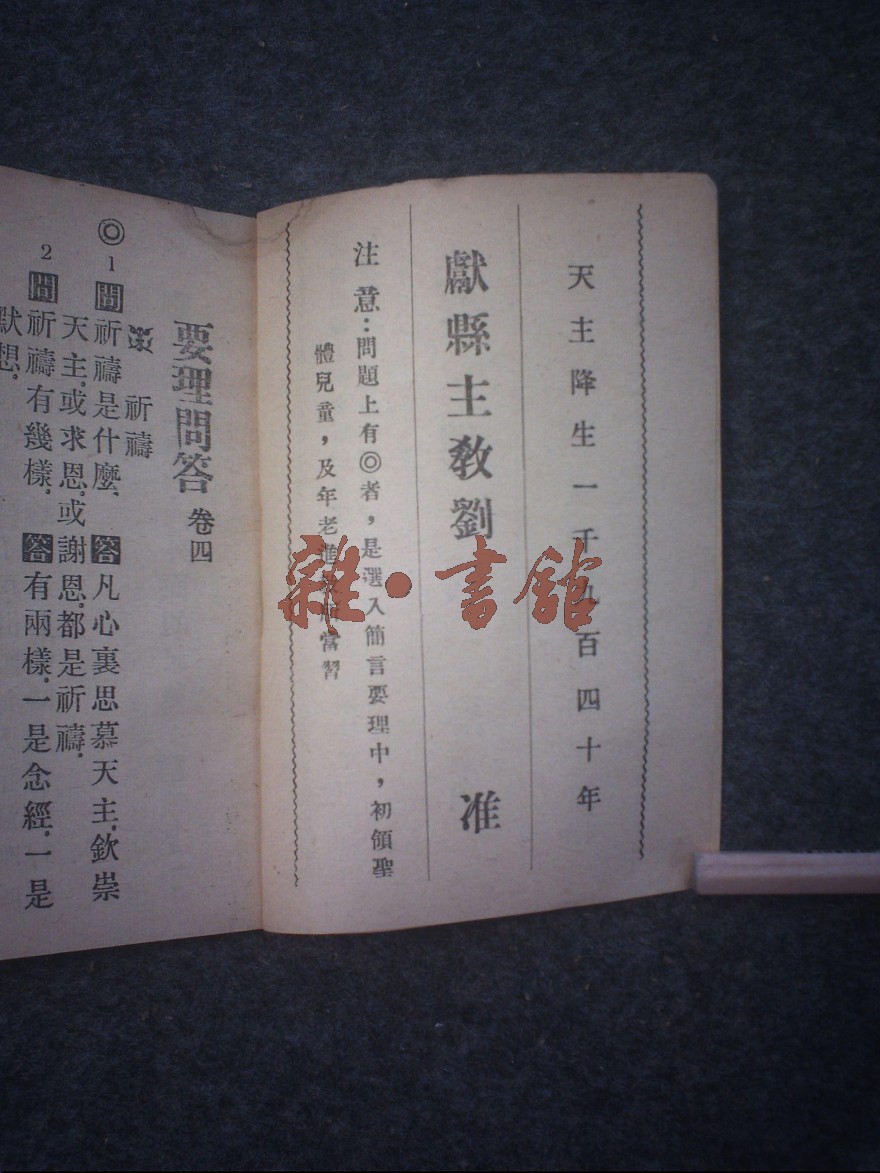 天主降生一千九百四十年
獻縣主教劉 准
注意:問題上有◎者,是選入簡言要理中,初領聖
體兒童,及年老進教當習
雜·書館
要理問答 卷四
祈禱
◎ 1 問祈禱是什麼. 答凡心裏思慕天主.欽崇
天主.或求恩.或謝恩.都是祈禱.
2 問祈禱有幾樣. 答有兩樣.一是念經.一是
默想.